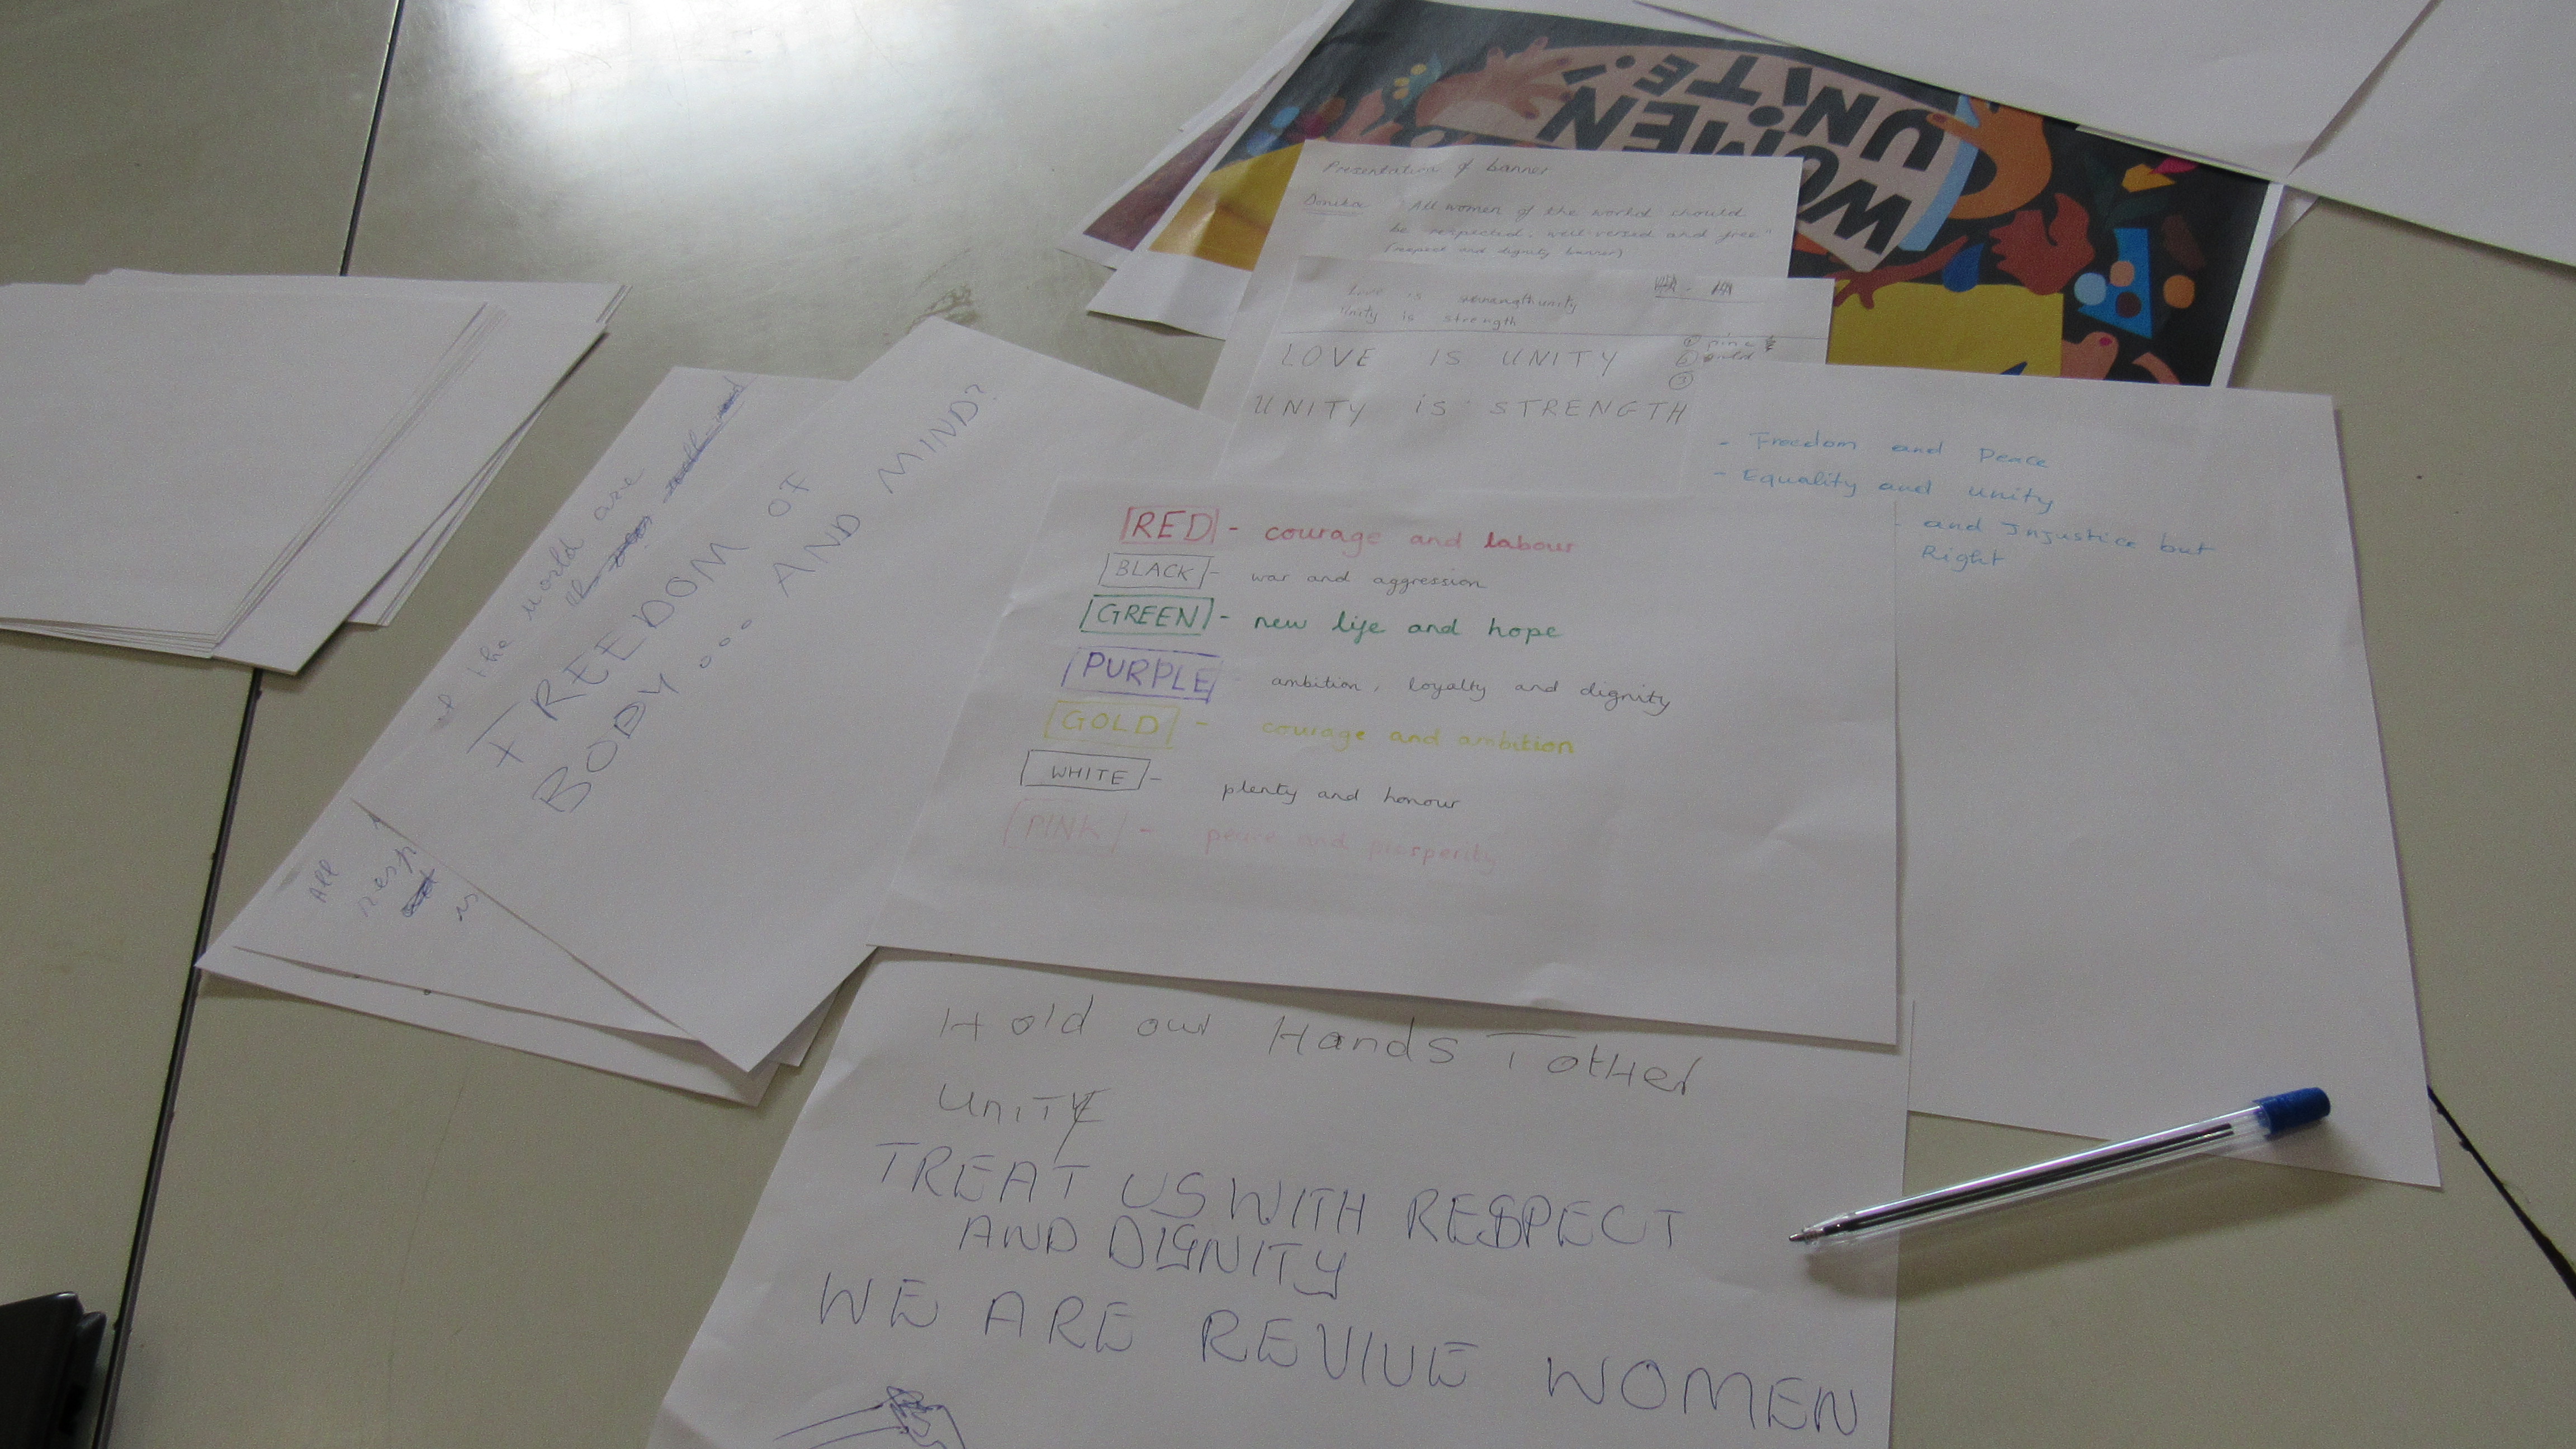 WOMEN
UNITE!
Presentation of banner
Donika "All women of the world should
be respected, well-versed and free"
(respect and dignity banner)
Love is unity
Unity is strength
LOVE IS UNITY
UNITY is STRENGTH
① pink
② gold
③
- Freedom and Peace
- Equality and unity
and Injustice but
Right
RED - courage and labour
BLACK - war and aggression
GREEN - new life and hope
PURPLE - ambition, loyalty and dignity
GOLD - courage and ambition
WHITE - plenty and honour
PINK - peace and prosperity
the world are
FREEDOM OF
BODY... AND MIND?
All
resp
is
Hold our Hands Tother
UNITY
TREAT US WITH RESPECT
AND DIGNITY
WE ARE REVIVE WOMEN